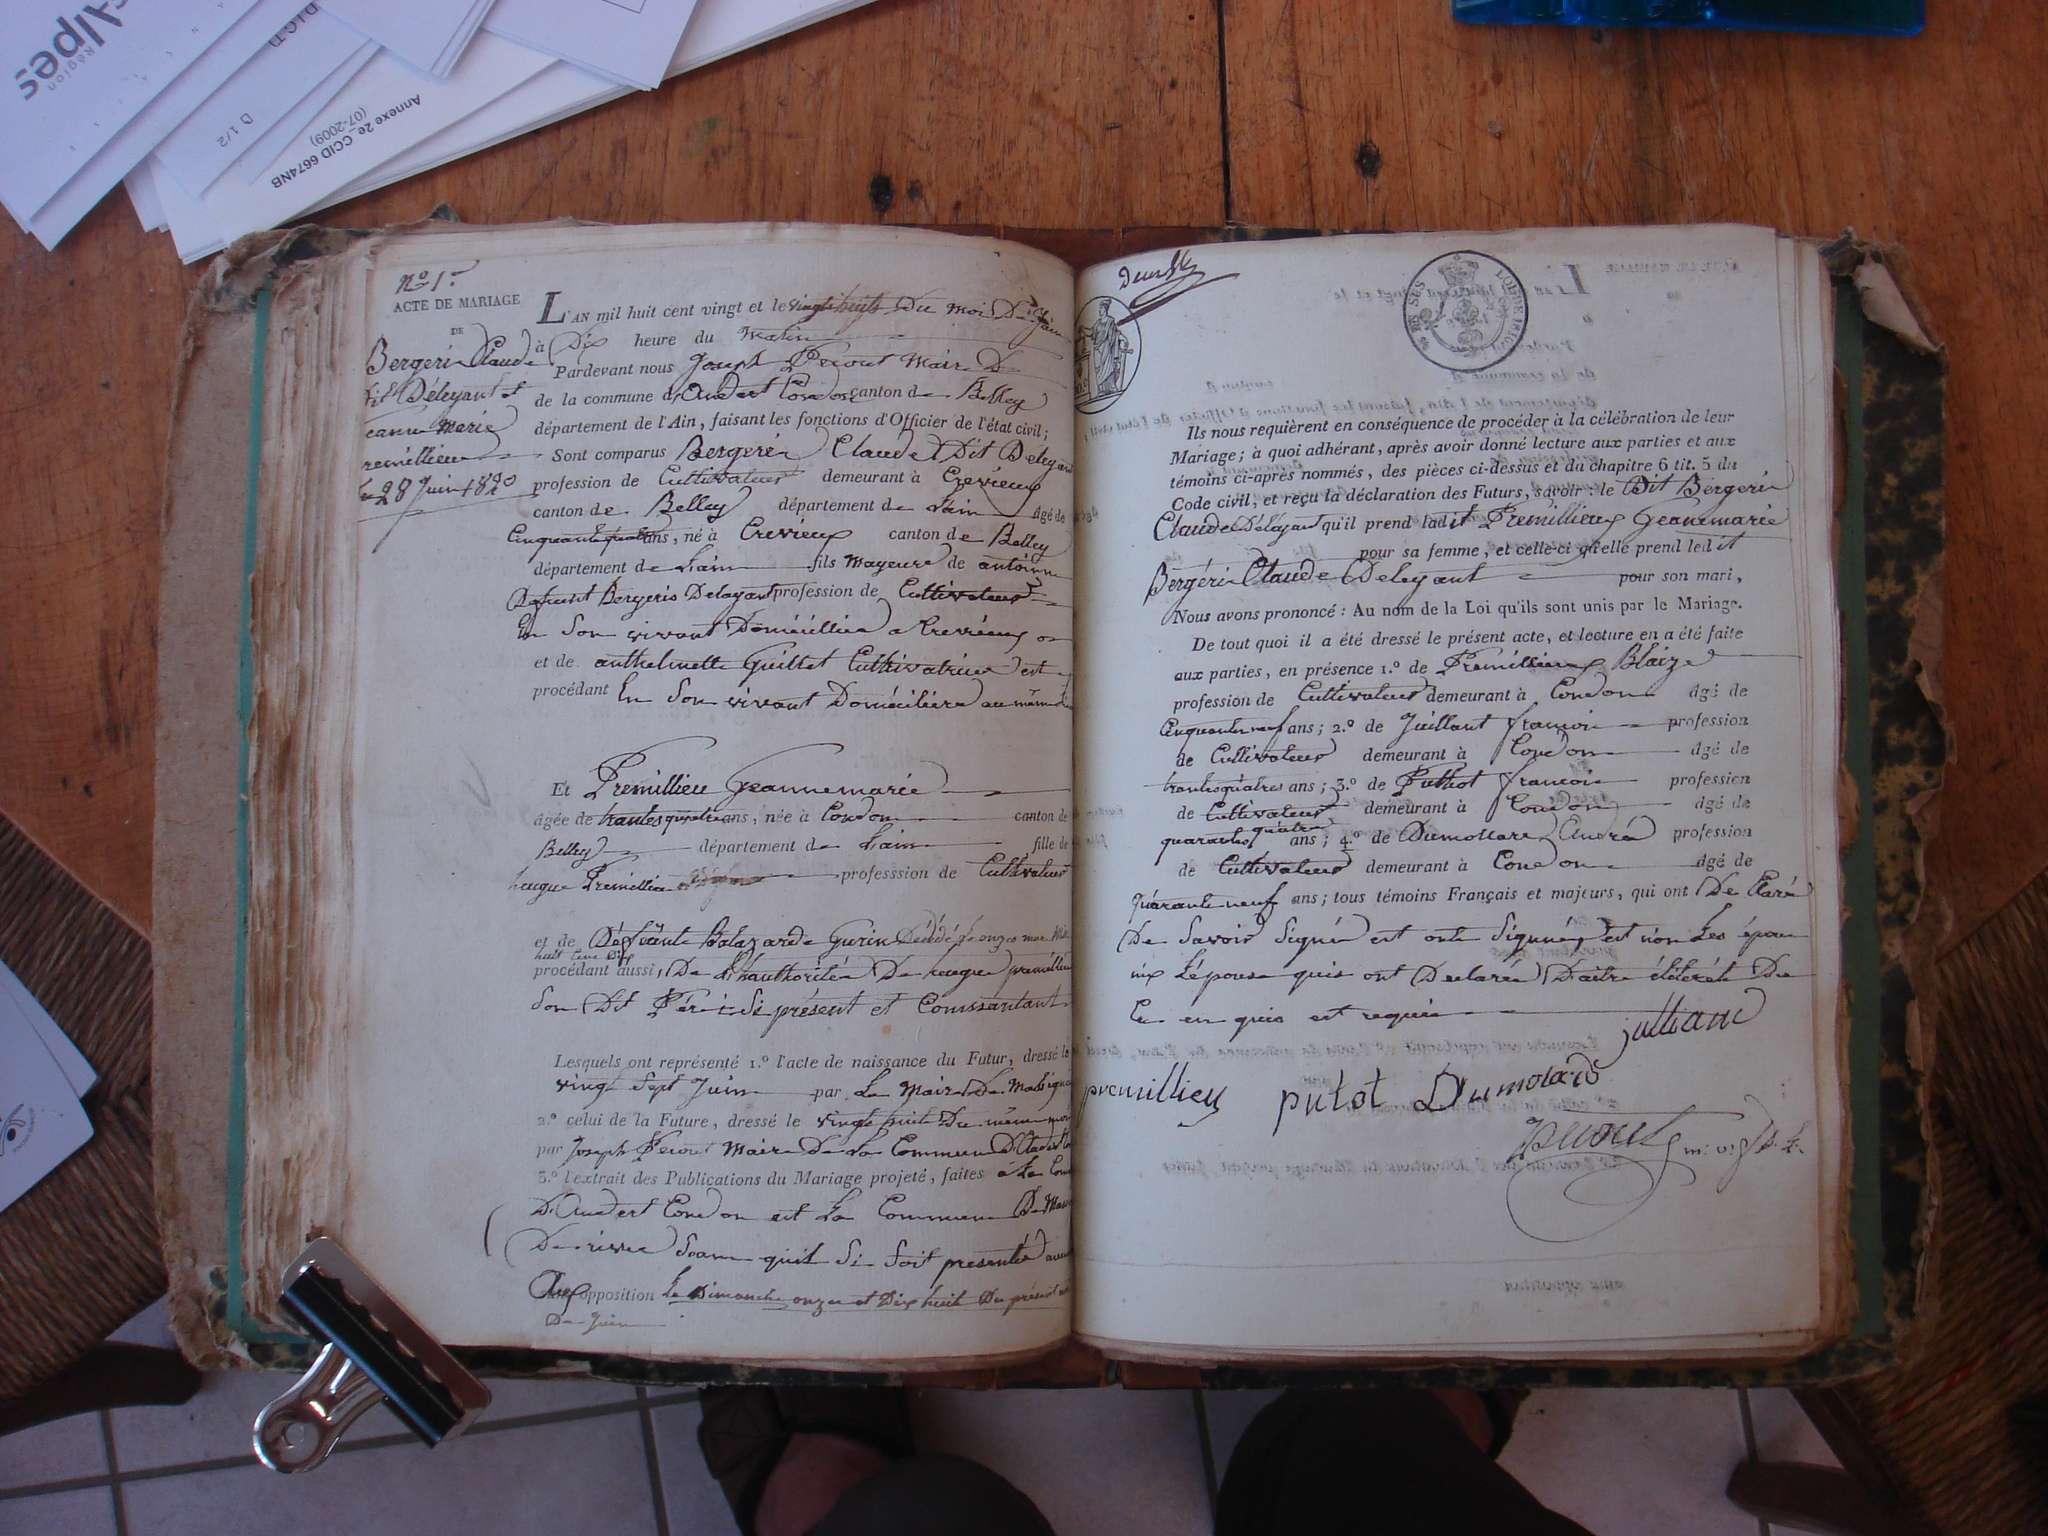 Alpes
Région
D 1/2
Annexe 2e_CCID 6674NB
(07-2009)
No 1er
ACTE DE MARIAGE
DE
Bergerin Claude
dit Déleyant et
Jeanne Marie
Premillieu
le 28 Juin 1820
L'AN mil huit cent vingt et le vingt huit Du moi De Juin
à Dix heure du Matin
Pardevant nous Joseph Peront Maire De
de la commune d'Andert Condon canton de Belley
département de l'Ain, faisant les fonctions d'Officier de l'état civil;
Sont comparus Bergerin Claude Dit Deleyant
profession de Cultivateur demeurant à Crévieux
canton de Belley département de Lain âgé de
Cinquante quatre ans, né à Crevieux canton de Belley
département de Lain fils mageure de antoine
Defunt Bergerin Delayant profession de Cultivateur
En Son vivant Domécillier a Crevieux
et de anthelmette Guillet Cultivatrice est
procédant En Son vivant Domécilière au même
Et Premillieu Jeannemarie
âgée de trantes quatre ans, née à Condon canton de
Belley département de Lain fille de
heugue Premillieu professsion de Cultivateur
et de Défunte Balazarde Gurin Dédédé Le onze mar Mil
huit Cent Dix
procédant aussi, De L'hauthoritée De heugue premillieu
Son Dit Pére si présent et Conssantant
Lesquels ont représenté 1.º l'acte de naissance du Futur, dressé le
vingt Sept Juin par Le Maire De Massigneu
2.º celui de la Future, dressé le vingt huit Du même moi
par Joseph Peront Maire De La Commune D'Andert
3.º l'extrait des Publications du Mariage projeté, faites a La Com
D'Andert Condon est La Commune De Massi
De rives Sans quil Si Soit presentée aucune
opposition Le Dimanche onze et Dix huit Du présent moi
De Juin
Ils nous requièrent en conséquence de procéder à la célébration de leur
Mariage; à quoi adhérant, après avoir donné lecture aux parties et aux
témoins ci-après nommés, des pièces ci-dessus et du chapitre 6 tit. 5 du
Code civil, et reçu la déclaration des Futurs, savoir : le Dit Bergerin
Claude Déléyant qu'il prend ladit Premillieux Jeanemarie
pour sa femme, et celle-ci qu'elle prend ledit
Bergérin Claude Deleyant pour son mari,
Nous avons prononcé : Au nom de la Loi qu'ils sont unis par le Mariage.
De tout quoi il a été dressé le présent acte, et lecture en a été faite
aux parties, en présence 1.º de Premillieux Blaize
profession de Cultivateur demeurant à Condon âgé de
Cinquante neuf ans; 2.º de Juillant francoi profession
de Cultivateur demeurant à Condon âgé de
trantes quatres ans; 3.º de Puthot francoi profession
de Cultivateur demeurant à Condon âgé de
quarantes quatre ans; 4.º de Dumollard André profession
de Cultivateur demeurant à Condon âgé de
Quarante neuf ans; tous témoins Français et majeurs, qui ont De Claré
De Savoir Signer est ont Signné est non Les époux
nix Lépouse quis ont Declarée Daitre élétérée De
Ce en quis est requis
julliand
premillieu putot Dumolard